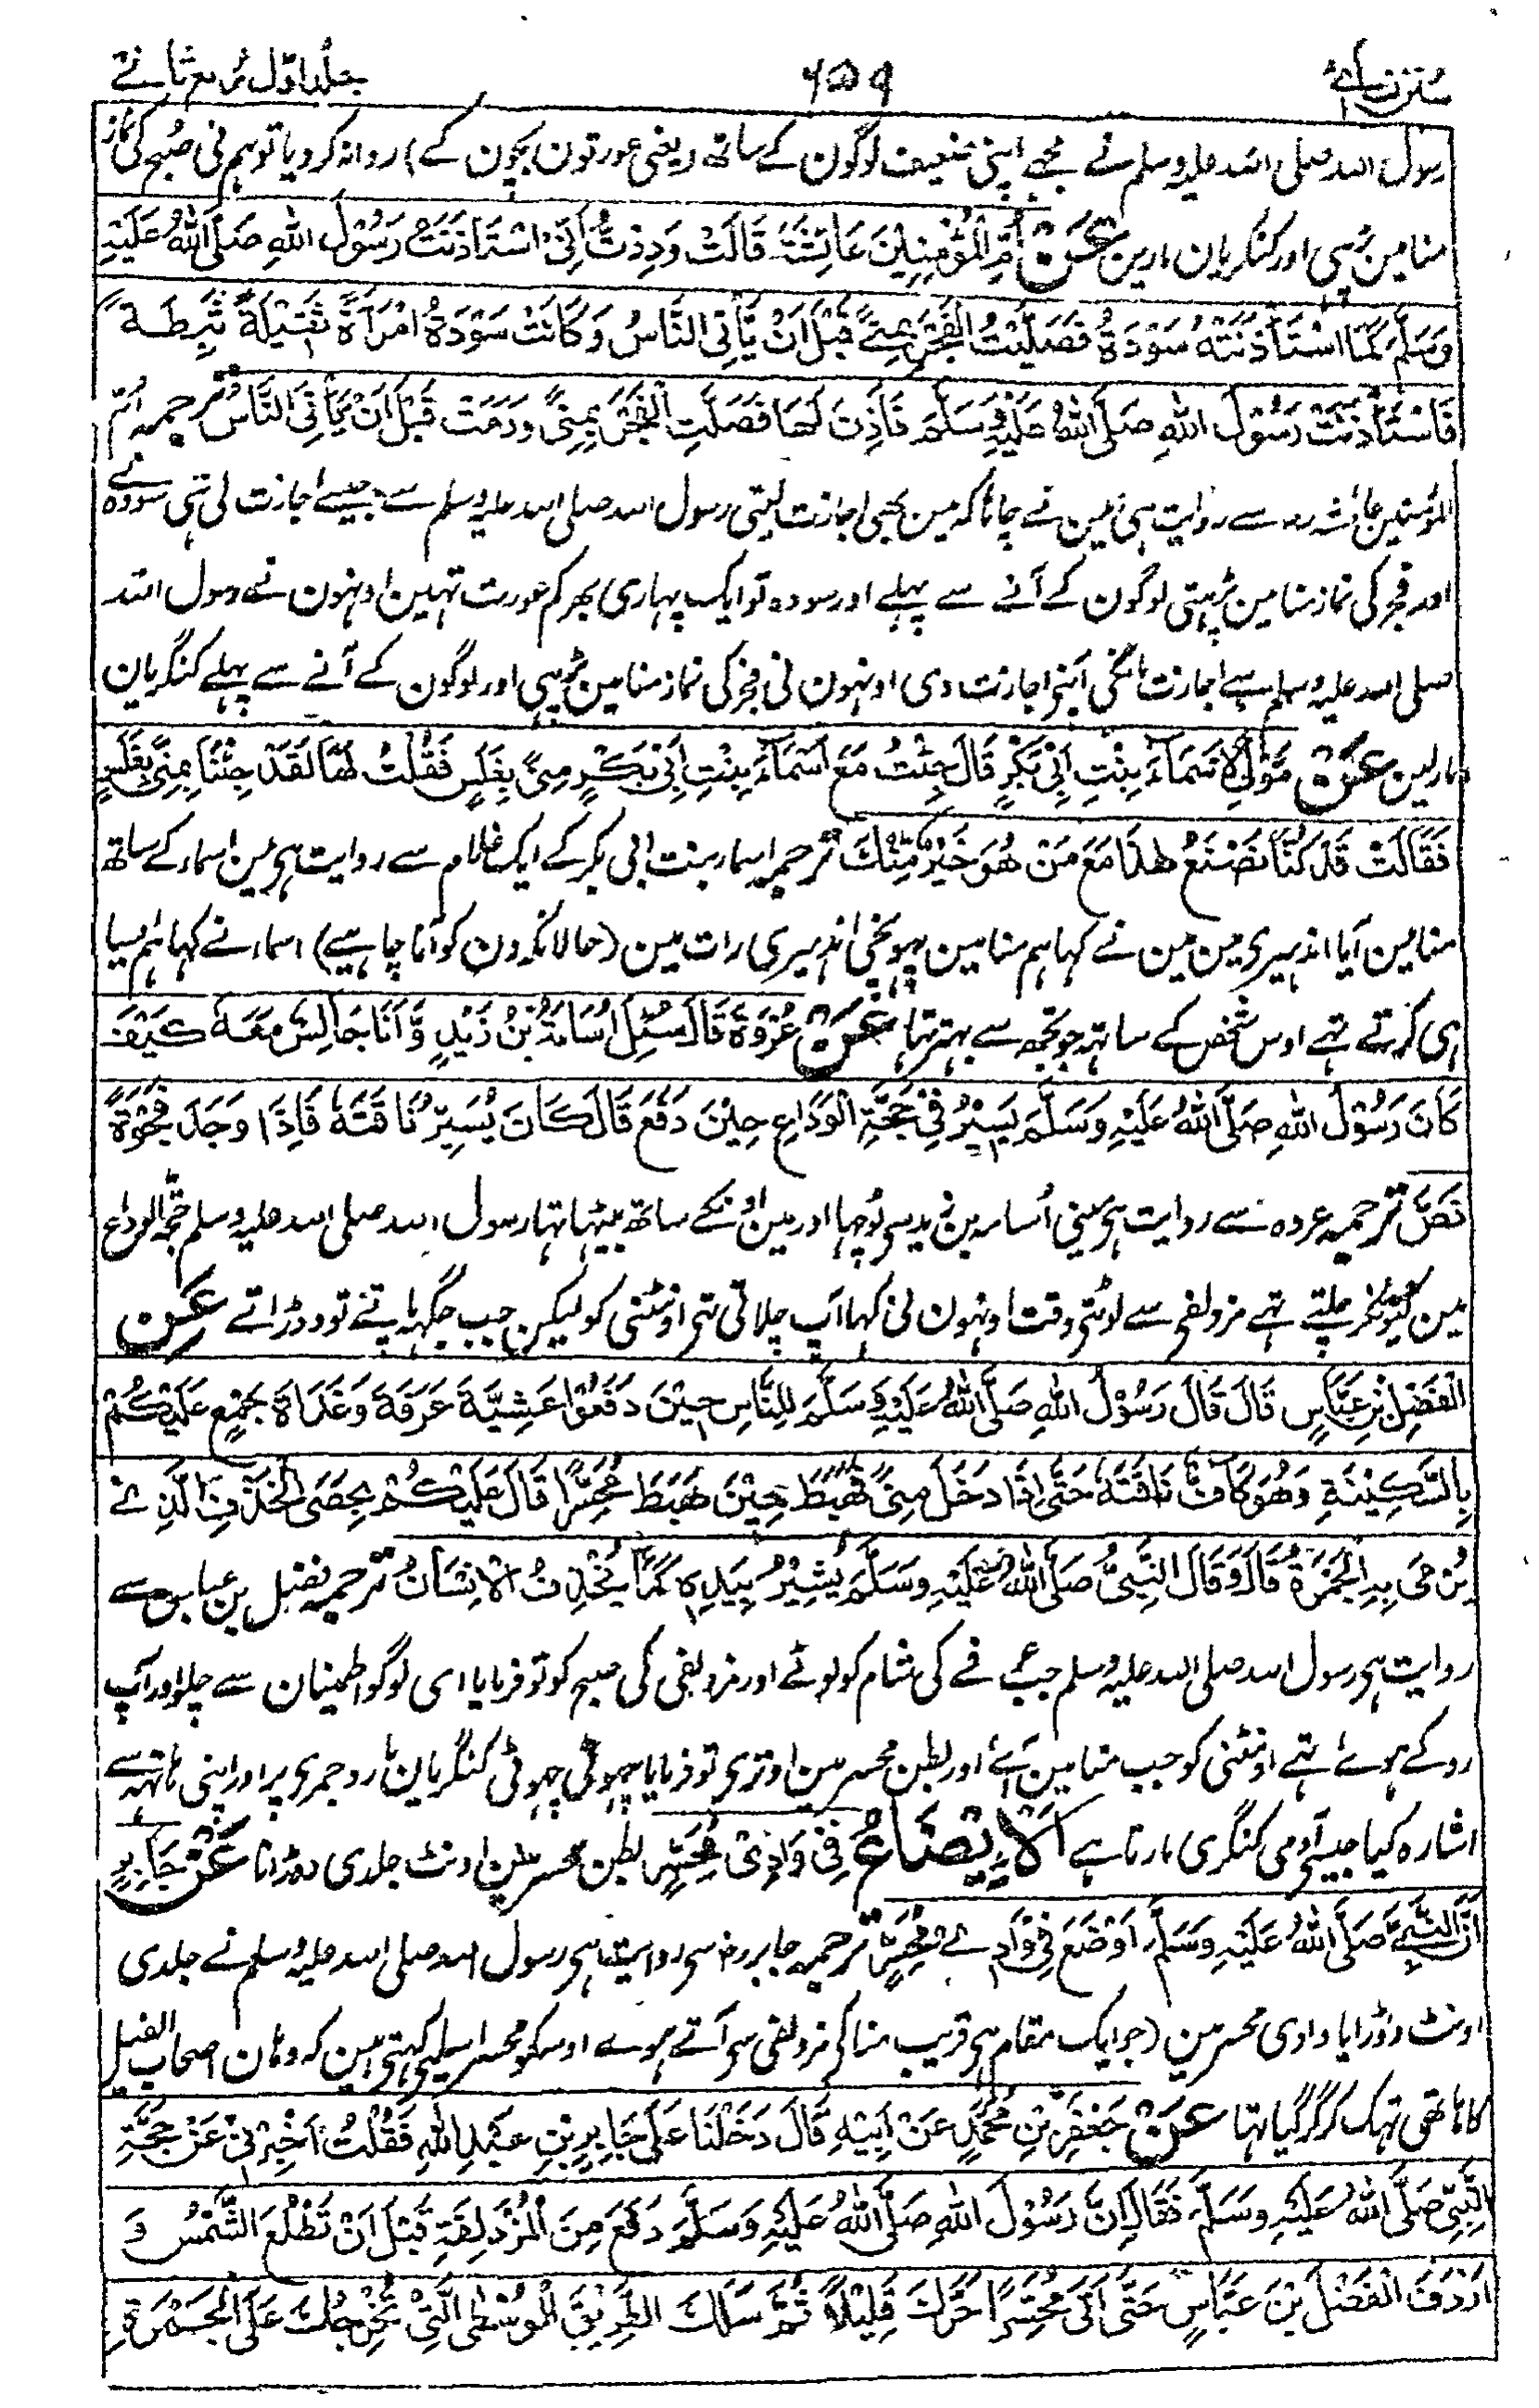 سنن نسائی ۶۵۹ جلد اوّل ربع ثانے
رسول اللہ صلی اللہ علیہ وسلم نے مجھے اپنی ضعیف لوگون کے ساتھ (یعنی عورتون بچون کے) روانہ کردیا تو ہم نی صبح کی نماز
منا مین پڑہی اور کنکریان مارین عَنْ اُمِّ الْمُؤْمِنِیْنَ عَائِشَۃَ قَالَتْ وَدِدْتُّ اَنِّیْ اسْتَاْذَنْتُ رَسُوْلَ اللہِ صَلَّی اللہُ عَلَیْہِ
وَسَلَّمَ کَمَا اسْتَاْذَنَتْہُ سَوْدَۃُ فَصَلَّیْتُ الْفَجْرَ بِمِنًے قَبْلَ اَنْ یَّاْتِیَ النَّاسُ وَکَانَتْ سَوْدَۃُ امْرَاَۃً ثَقِیْلَۃً ثَبِطَۃً
فَاسْتَاْذَنَتْ رَسُوْلَ اللہِ صَلَّی اللہُ عَلَیْہِ وَسَلَّمَ فَاَذِنَ لَھَا فَصَلَّتِ الْفَجْرَ بِمِنًی وَرَمَتْ قَبْلَ اَنْ یَّاْتِیَ النَّاسُ ترجمہ ام
المؤمنین عائشہ رض سے روایت ہی مین نے چاہا کہ مین بھی اجازت لیتی رسول اللہ صلی اللہ علیہ وسلم سے جیسے اجازت لی تہی سودہ نے
اور فجر کی نماز منا مین پڑہتی لوگون کے آنے سے پہلے اور سودہ تو ایک بہاری بھر کم عورت تہین اونہون نے رسول اللہ
صلی اللہ علیہ وسلم سے اجازت مانگی آپنے اجازت دی اونہون نی فجر کی نماز منا مین پڑہی اور لوگون کے آنے سے پہلے کنکریان
مارلین عَنْ مَوْلٰی لِاَسْمَاءَ بِنْتِ اَبِیْ بَکْرٍ قَالَ جِئْتُ مَعَ اَسْمَاءَ بِنْتِ اَبِیْ بَکْرٍ مِنًی بِغَلَسٍ فَقُلْتُ لَھَا لَقَدْ جِئْنَا مِنًی بِغَلَسٍ
فَقَالَتْ قَدْ کُنَّا نَصْنَعُ ھٰذَا مَعَ مَنْ ھُوَ خَیْرٌ مِّنْکَ ترجمہ اسماء بنت ابی بکر کے ایک غلام سے روایت ہی مین اسماء کے ساتھ
منا مین آیا اندہیری مین مین نے کہا ہم منا مین پہونچی اندہیری رات مین (حالانکہ دن کو آنا چاہیے) اسماء نے کہا ہم ایسا
ہی کرتے تہے اوس شخص کے ساتہہ جو تجھ سے بہتر تہا عَنْ عُرْوَۃَ قَالَ سُئِلَ اُسَامَۃُ بْنُ زَیْدٍ وَّاَنَا جَالِسٌ مَعَہٗ کَیْفَ
کَانَ رَسُوْلُ اللہِ صَلَّی اللہُ عَلَیْہِ وَسَلَّمَ یَسِیْرُ فِیْ حَجَّۃِ الْوَدَاعِ حِیْنَ دَفَعَ قَالَ کَانَ یُسَیِّرُ نَاقَتَہٗ فَاِذَا وَجَدَ فَجْوَۃً
نَصَّ ترجمہ عروہ سے روایت ہی مینی اُسامہ بن زید سی پُوچہا اور مین اونکے ساتھ بیٹہا تہا رسول اللہ صلی اللہ علیہ وسلم حجۃ الوداع
مین کیونکر چلتے تہے مزدلفی سے لوٹتی وقت اونہون نی کہا آپ چلاتی تہی اونٹنی کو لیکن جب جگہہ پاتے تو دوڑاتے عَنِ
الْفَضْلِ بْنِ عَبَّاسٍ قَالَ قَالَ رَسُوْلُ اللہِ صَلَّی اللہُ عَلَیْہِ وَسَلَّمَ لِلنَّاسِ حِیْنَ دَفَعُوْا عَشِیَّۃَ عَرَفَۃَ وَغَدَاۃَ جَمْعٍ عَلَیْکُمْ
بِالسَّکِیْنَۃِ وَھُوَ کَافٌّ نَاقَتَہٗ حَتّٰی اِذَا دَخَلَ مِنًی فَھَبَطَ حِیْنَ ھَبَطَ مُحَسِّرًا قَالَ عَلَیْکُمْ بِحَصَی الْخَذْفِ الَّذِیْ
یُرْمٰی بِہِ الْجَمْرَۃُ قَالَ وَقَالَ النَّبِیُّ صَلَّی اللہُ عَلَیْہِ وَسَلَّمَ یُشِیْرُ بِیَدِہٖ کَمَا یَخْذِفُ الْاِنْسَانُ ترجمہ فضل بن عباس سے
روایت ہی رسول اللہ صلی اللہ علیہ وسلم جب عرفے کی شام کو لوٹے اور مزدلفی کی صبح کو تو فرمایا ای لوگو اطمینان سے چلو اور آپ
روکے ہوئے تہے اونٹنی کو جب منا مین آئے اور بطن محسر مین اوتری تو فرمایا چہوٹی چہوٹی کنکریان مارو جمری پر اور اپنی ہاتہہ سے
اشارہ کیا جیسے آدمی کنکری مارتا ہے اَلْاِیْضَاعُ فِیْ وَادِیْ مُحَسِّرٍ بطن محسر مین اونٹ جلدی دوڑانا عَنْ جَابِرٍ
اَنَّ النَّبِیَّ صَلَّی اللہُ عَلَیْہِ وَسَلَّمَ اَوْضَعَ فِیْ وَادِیْ مُحَسِّرٍ ترجمہ جابر رض سی روایت ہی رسول اللہ صلی اللہ علیہ وسلم نے جلدی
اونٹ دوڑایا وادی محسر مین (جو ایک مقام ہی قریب منا کی مزدلفی سی آتے ہوے اوسکو محسر اسلیے کہتی ہین کہ وہان اصحاب الفیل
کا ہاتھی تہک کر گر گیا تہا عَنْ جَعْفَرِ بْنِ مُحَمَّدٍ عَنْ اَبِیْہِ قَالَ دَخَلْنَا عَلٰی جَابِرِ بْنِ عَبْدِ اللہِ فَقُلْتُ اَخْبِرْنِیْ عَنْ حَجَّۃِ
النَّبِیِّ صَلَّی اللہُ عَلَیْہِ وَسَلَّمَ فَقَالَ اِنَّ رَسُوْلَ اللہِ صَلَّی اللہُ عَلَیْہِ وَسَلَّمَ دَفَعَ مِنَ الْمُزْدَلِفَۃِ قَبْلَ اَنْ تَطْلُعَ الشَّمْسُ وَ
اَرْدَفَ الْفَضْلَ بْنَ عَبَّاسٍ حَتّٰی اَتٰی مُحَسِّرًا حَرَّکَ قَلِیْلًا ثُمَّ سَلَکَ الطَّرِیْقَ الْوُسْطَی الَّتِیْ تُخْرِجُکَ عَلَی الْجَمْرَۃِ